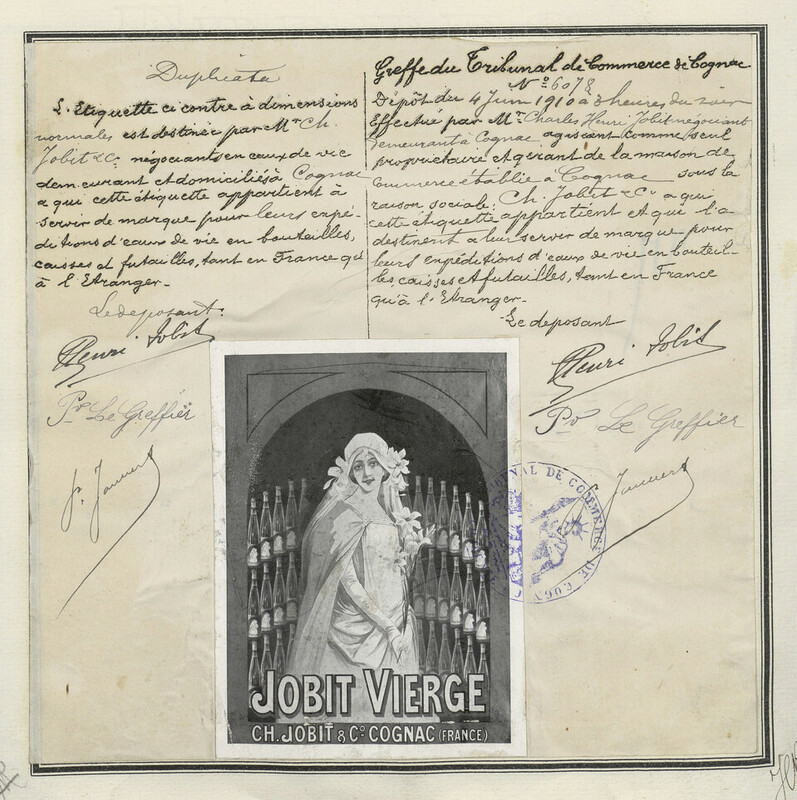 Duplicata
L'Etiquette ci contre à dimensions
normales est destinée par Mr Ch.
Jobit & Co négociants en eaux de vie
demeurant et domiciliés à Cognac
a qui cette étiquette appartient à
servir de marque pour leurs expé-
ditions d'eaux de vie en bouteilles,
caisses et futailles, tant en France qu'
à l'Etranger.
Le deposant.
Henri Jobit
Pr Le Greffier
Greffe du Tribunal de Commerce de Cognac
No 6078
Dépôt du 4 Juin 1910 à 3 heures du soir
Effectué par Mr Charles Henri Jobit négociant
demeurant à Cognac agissant comme seul
propriétaire et gérant de la maison de
commerce établie à Cognac sous la
raison sociale: Ch. Jobit & Co a qui
cette étiquette appartient et qui l'a
destinent a leur servir de marque pour
leurs expéditions d'eaux de vie en bouteil-
les caisses et futailles, tant en France
qu'à l'Etranger.
Le deposant
Henri Jobit
Pr Le Greffier
JOBIT VIERGE
CH. JOBIT & Co COGNAC (FRANCE)
TRIBUNAL DE COMMERCE DE COGNAC